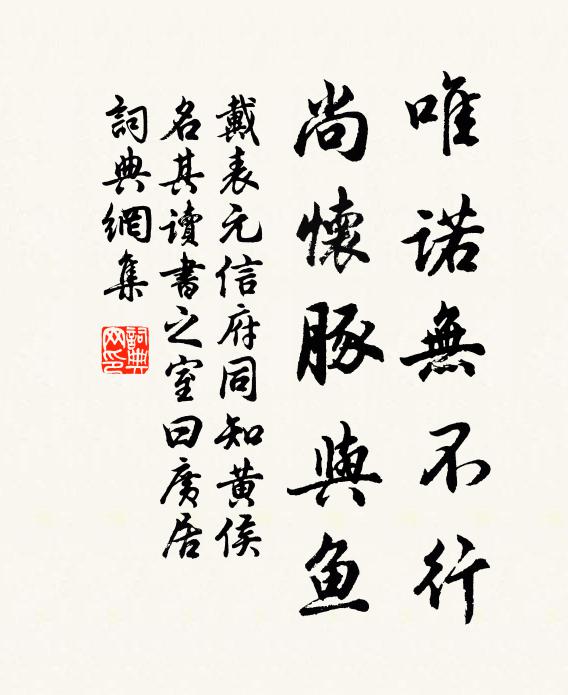 唯諾無不行
尚懷豚與魚
戴表元信府同知黃侯
名其讀書之室曰廣居
詞典網集
詞典網印